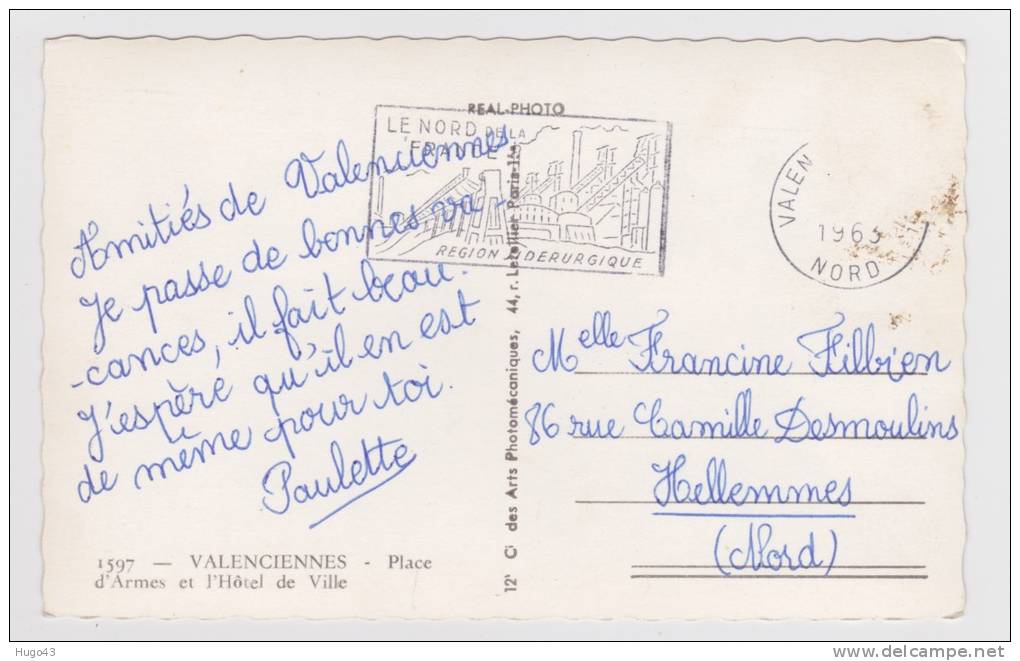 REAL-PHOTO
LE NORD DE LA
FRANCE
REGION SIDERURGIQUE
VALEN
1963
NORD
Amitiés de Valenciennes
Je passe de bonnes va-
-cances, il fait beau.
J'espère qu'il en est
de même pour toi.
Paulette
1597 — VALENCIENNES - Place
d'Armes et l'Hôtel de Ville
12e Cie des Arts Photomécaniques, 44, r. Letellier Paris-15e
Melle Francine Filbien
86 rue Camille Desmoulins
Hellemmes
(Nord)
Hugo43
delcampe.net